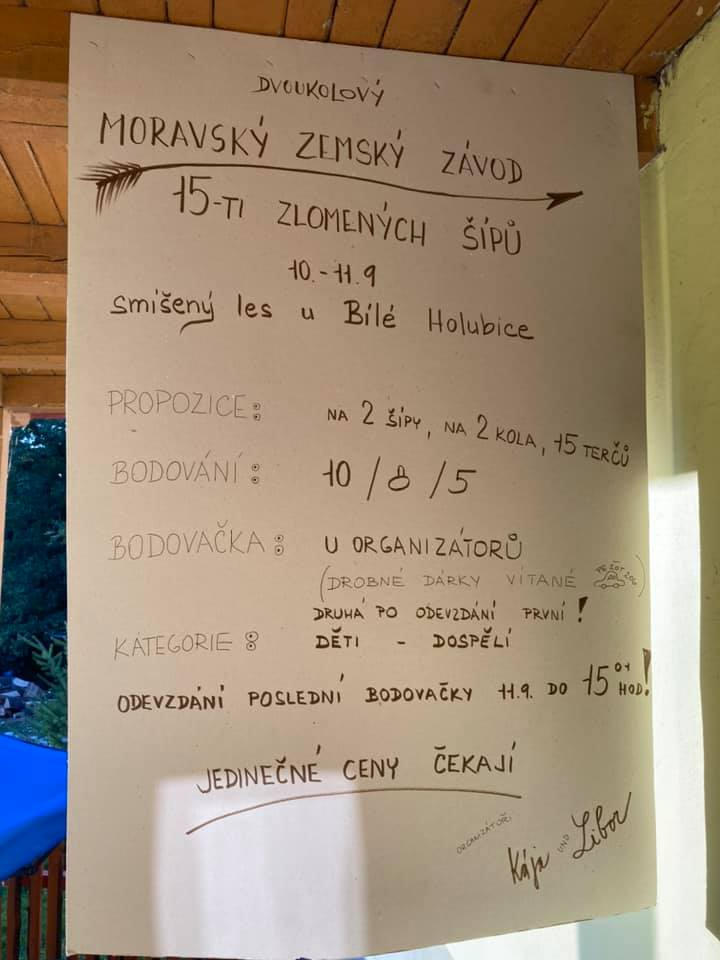 DVOUKOLOVÝ
MORAVSKÝ ZEMSKÝ ZÁVOD
15-TI ZLOMENÝCH ŠÍPŮ
10.-11.9
smíšený les u Bílé Holubice
PROPOZICE: NA 2 ŠÍPY, NA 2 KOLA, 15 TERČŮ
BODOVÁNÍ: 10/8/5
BODOVAČKA: U ORGANIZÁTORŮ
(DROBNÉ DÁRKY VÍTANÉ PEŽOT 206)
DRUHÁ PO ODEVZDÁNÍ PRVNÍ!
KATEGORIE: DĚTI - DOSPĚLÍ
ODEVZDÁNÍ POSLEDNÍ BODOVAČKY 11.9. DO 15 01 HOD!
JEDINEČNÉ CENY ČEKAJÍ
ORGANIZÁTOŘI
Kája UND Libor